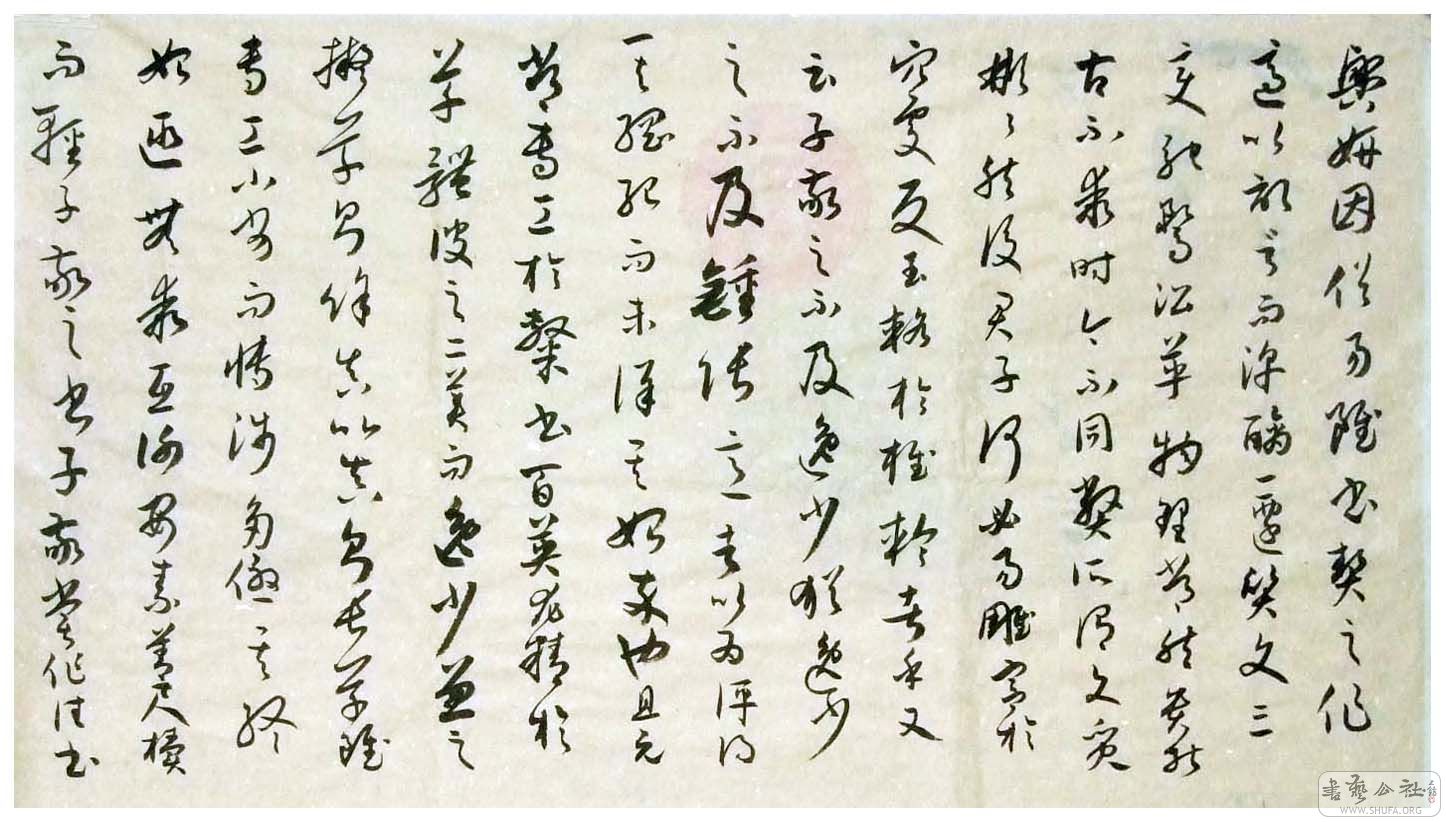 興妍因俗易雖書契之作
適以記言而淳醨一遷質文三
變馳騖沿革物理常然貴能
古不乖時今不同弊所謂文質
彬々然後君子何必易雕宮於
穴處反玉輅於椎輪者乎又
云子敬之不及逸少猶逸少
之不及鍾張意者以為評得
其綱紀而未詳其始卒也且元
常專工於隸書百英尤精於
草體彼之二美而逸少兼之
擬草則餘真比真則長草雖
專工小劣而博涉多優其終
始匪無乖互謝安素善尺牘
而輕子敬之書子敬嘗作佳書
書藝公社
WWW.SHUFA.ORG